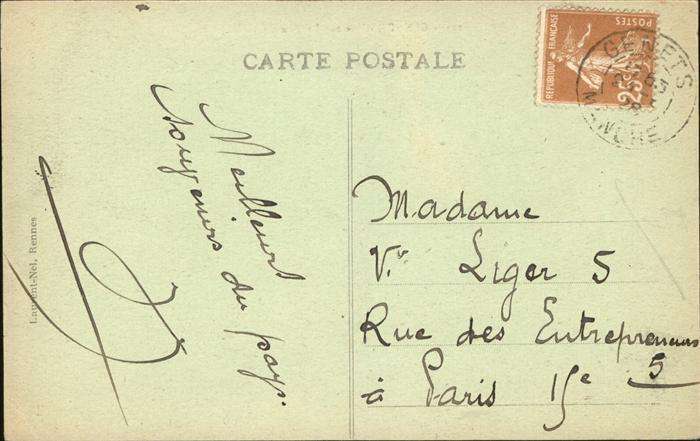 CARTE POSTALE
POSTES
REPUBLIQUE FRANÇAISE
25c
GENETS
MANCHE
Meilleurs
souvenirs du pays.
Madame
Vve Liger 5
Rue des Entrepreneurs
5
à Paris 15e
Laurent-Nel, Rennes